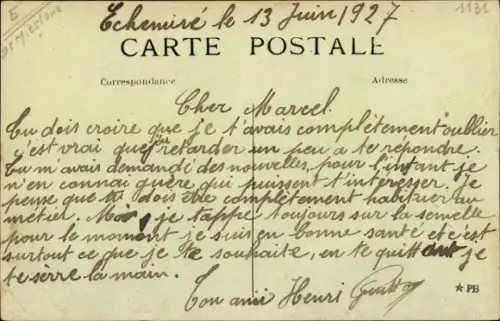 Echemiré le 13 Juin 1927
1131
CARTE POSTALE
Correspondance
Adresse
Cher Marcel.
Tu dois croire que je t'avais complètement oublier
c'est vrai que j'ai retarder un peu a te repondre.
Tu m'avais demandé des nouvelles, pour l'instant je
n'en connai guère qui puissent t'intéresser. Je
pense que tu dois être complètement habituer au
métier. Moi, je tappe toujours sur la semelle
pour le moment je suis en bonne santé et c'est
surtout ce que je te souhaite, en te quittant je
te serre la main.
Ton ami Henri
★ PB